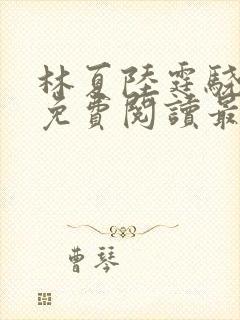 林夏陸霆驍
免費閱讀最
曹琴